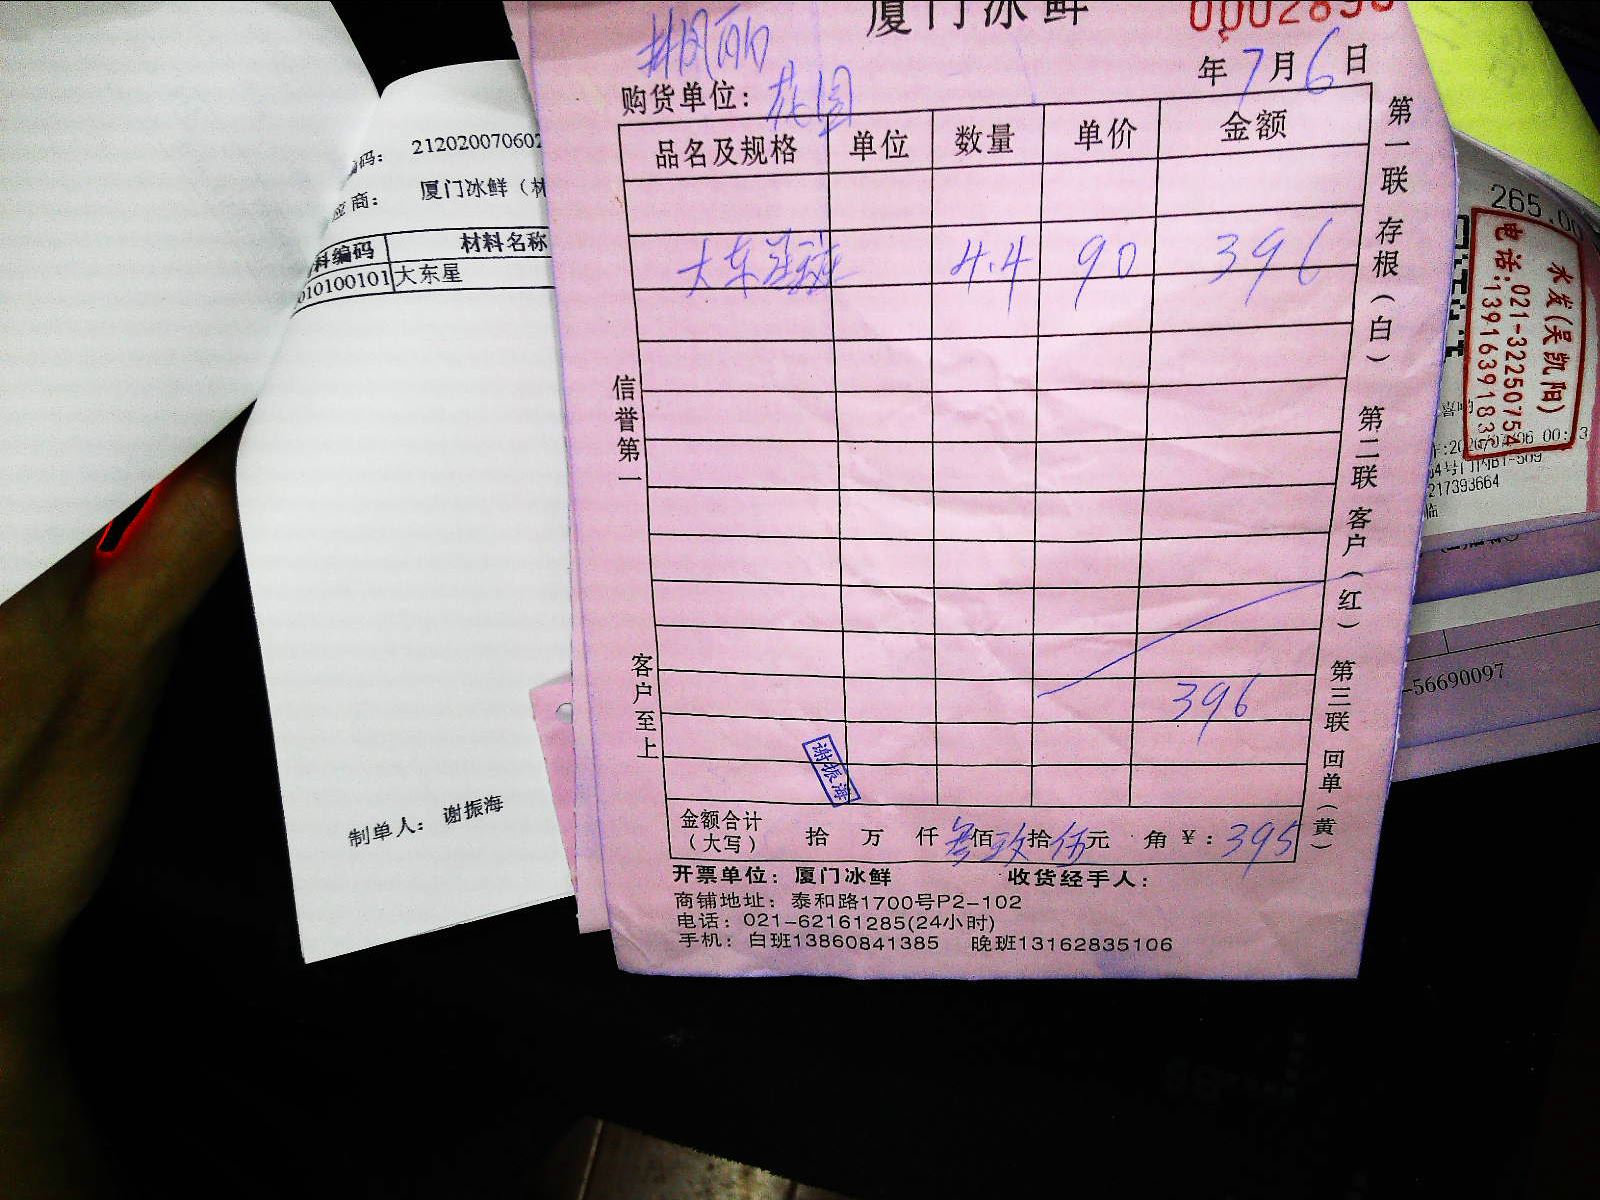 厦门冰鲜
林凤丽
年7月6日
购货单位：花园
品名及规格 单位 数量 单价 金额
大东星斑 4.4 90 396
396
谢振海
金额合计（大写） 拾 万 仟叁佰玖拾伍元 角 ￥：395
开票单位：厦门冰鲜 收货经手人：
商铺地址：泰和路1700号P2-102
电话：021-62161285(24小时)
手机：白班13860841385 晚班13162835106
信誉第一
客户至上
第一联 存根（白） 第二联 客户（红） 第三联 回单（黄）
编码：212020070602
应商：厦门冰鲜（林
料编码 材料名称
010100101 大东星
制单人：谢振海
265.00
水发(吴凯阳)
电话:021-32250754
13916391833
217393664
-56690097